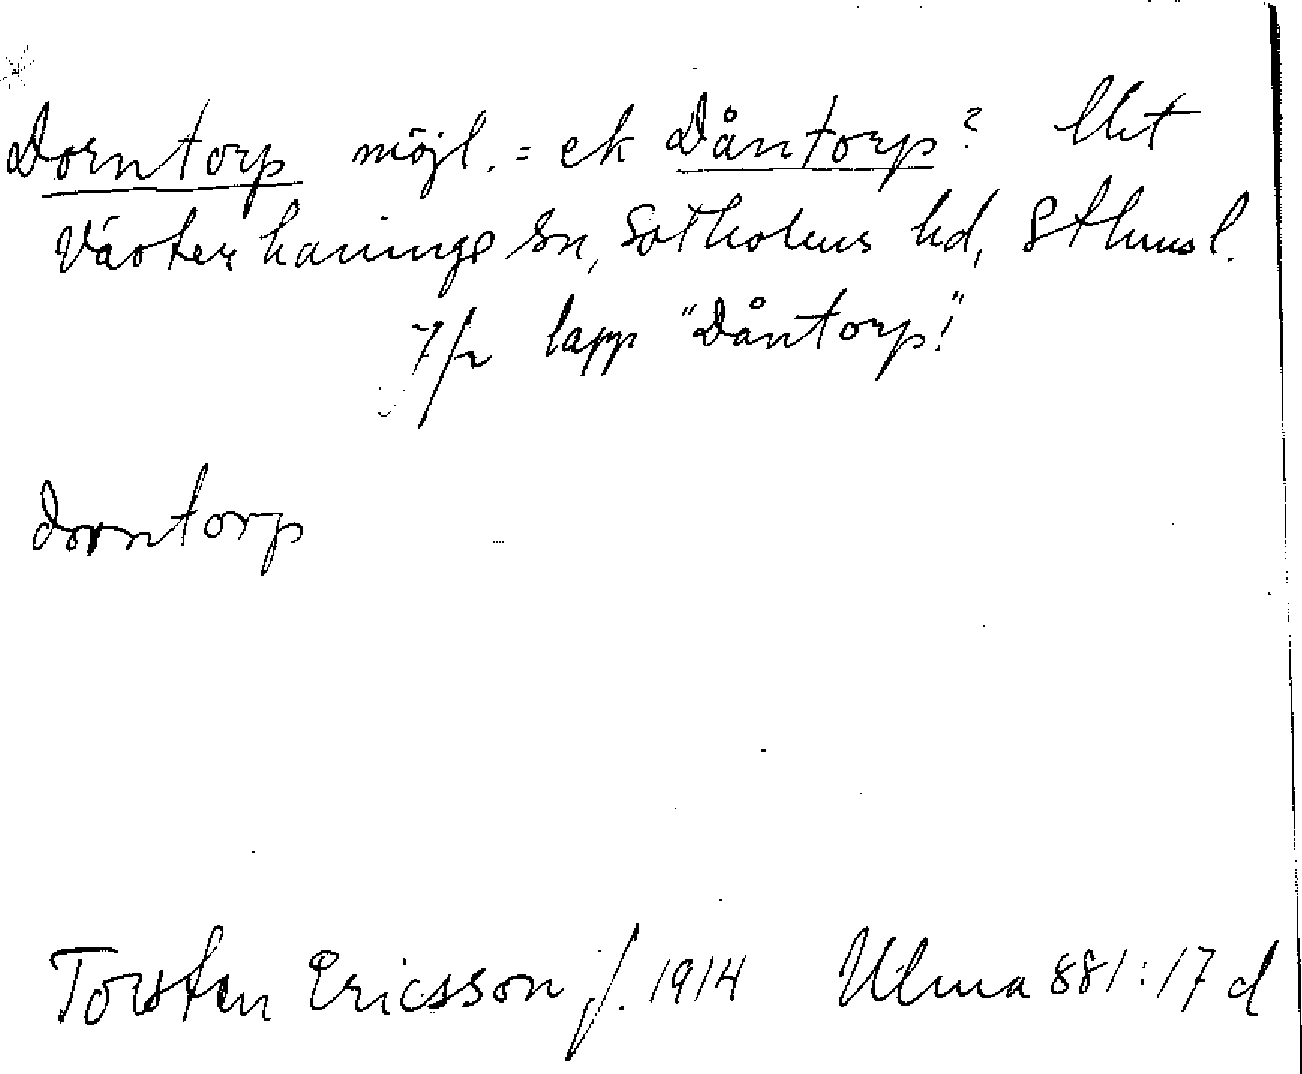 Dorntorp möjl. = ek Dåntorp?
Västerhaninge sn, Sotholms hd, Sthmsl.
Jfr lapp "Dåntorp!"
Dorntorp
Torsten Ericsson f. 1914 Ulma 881:17 d